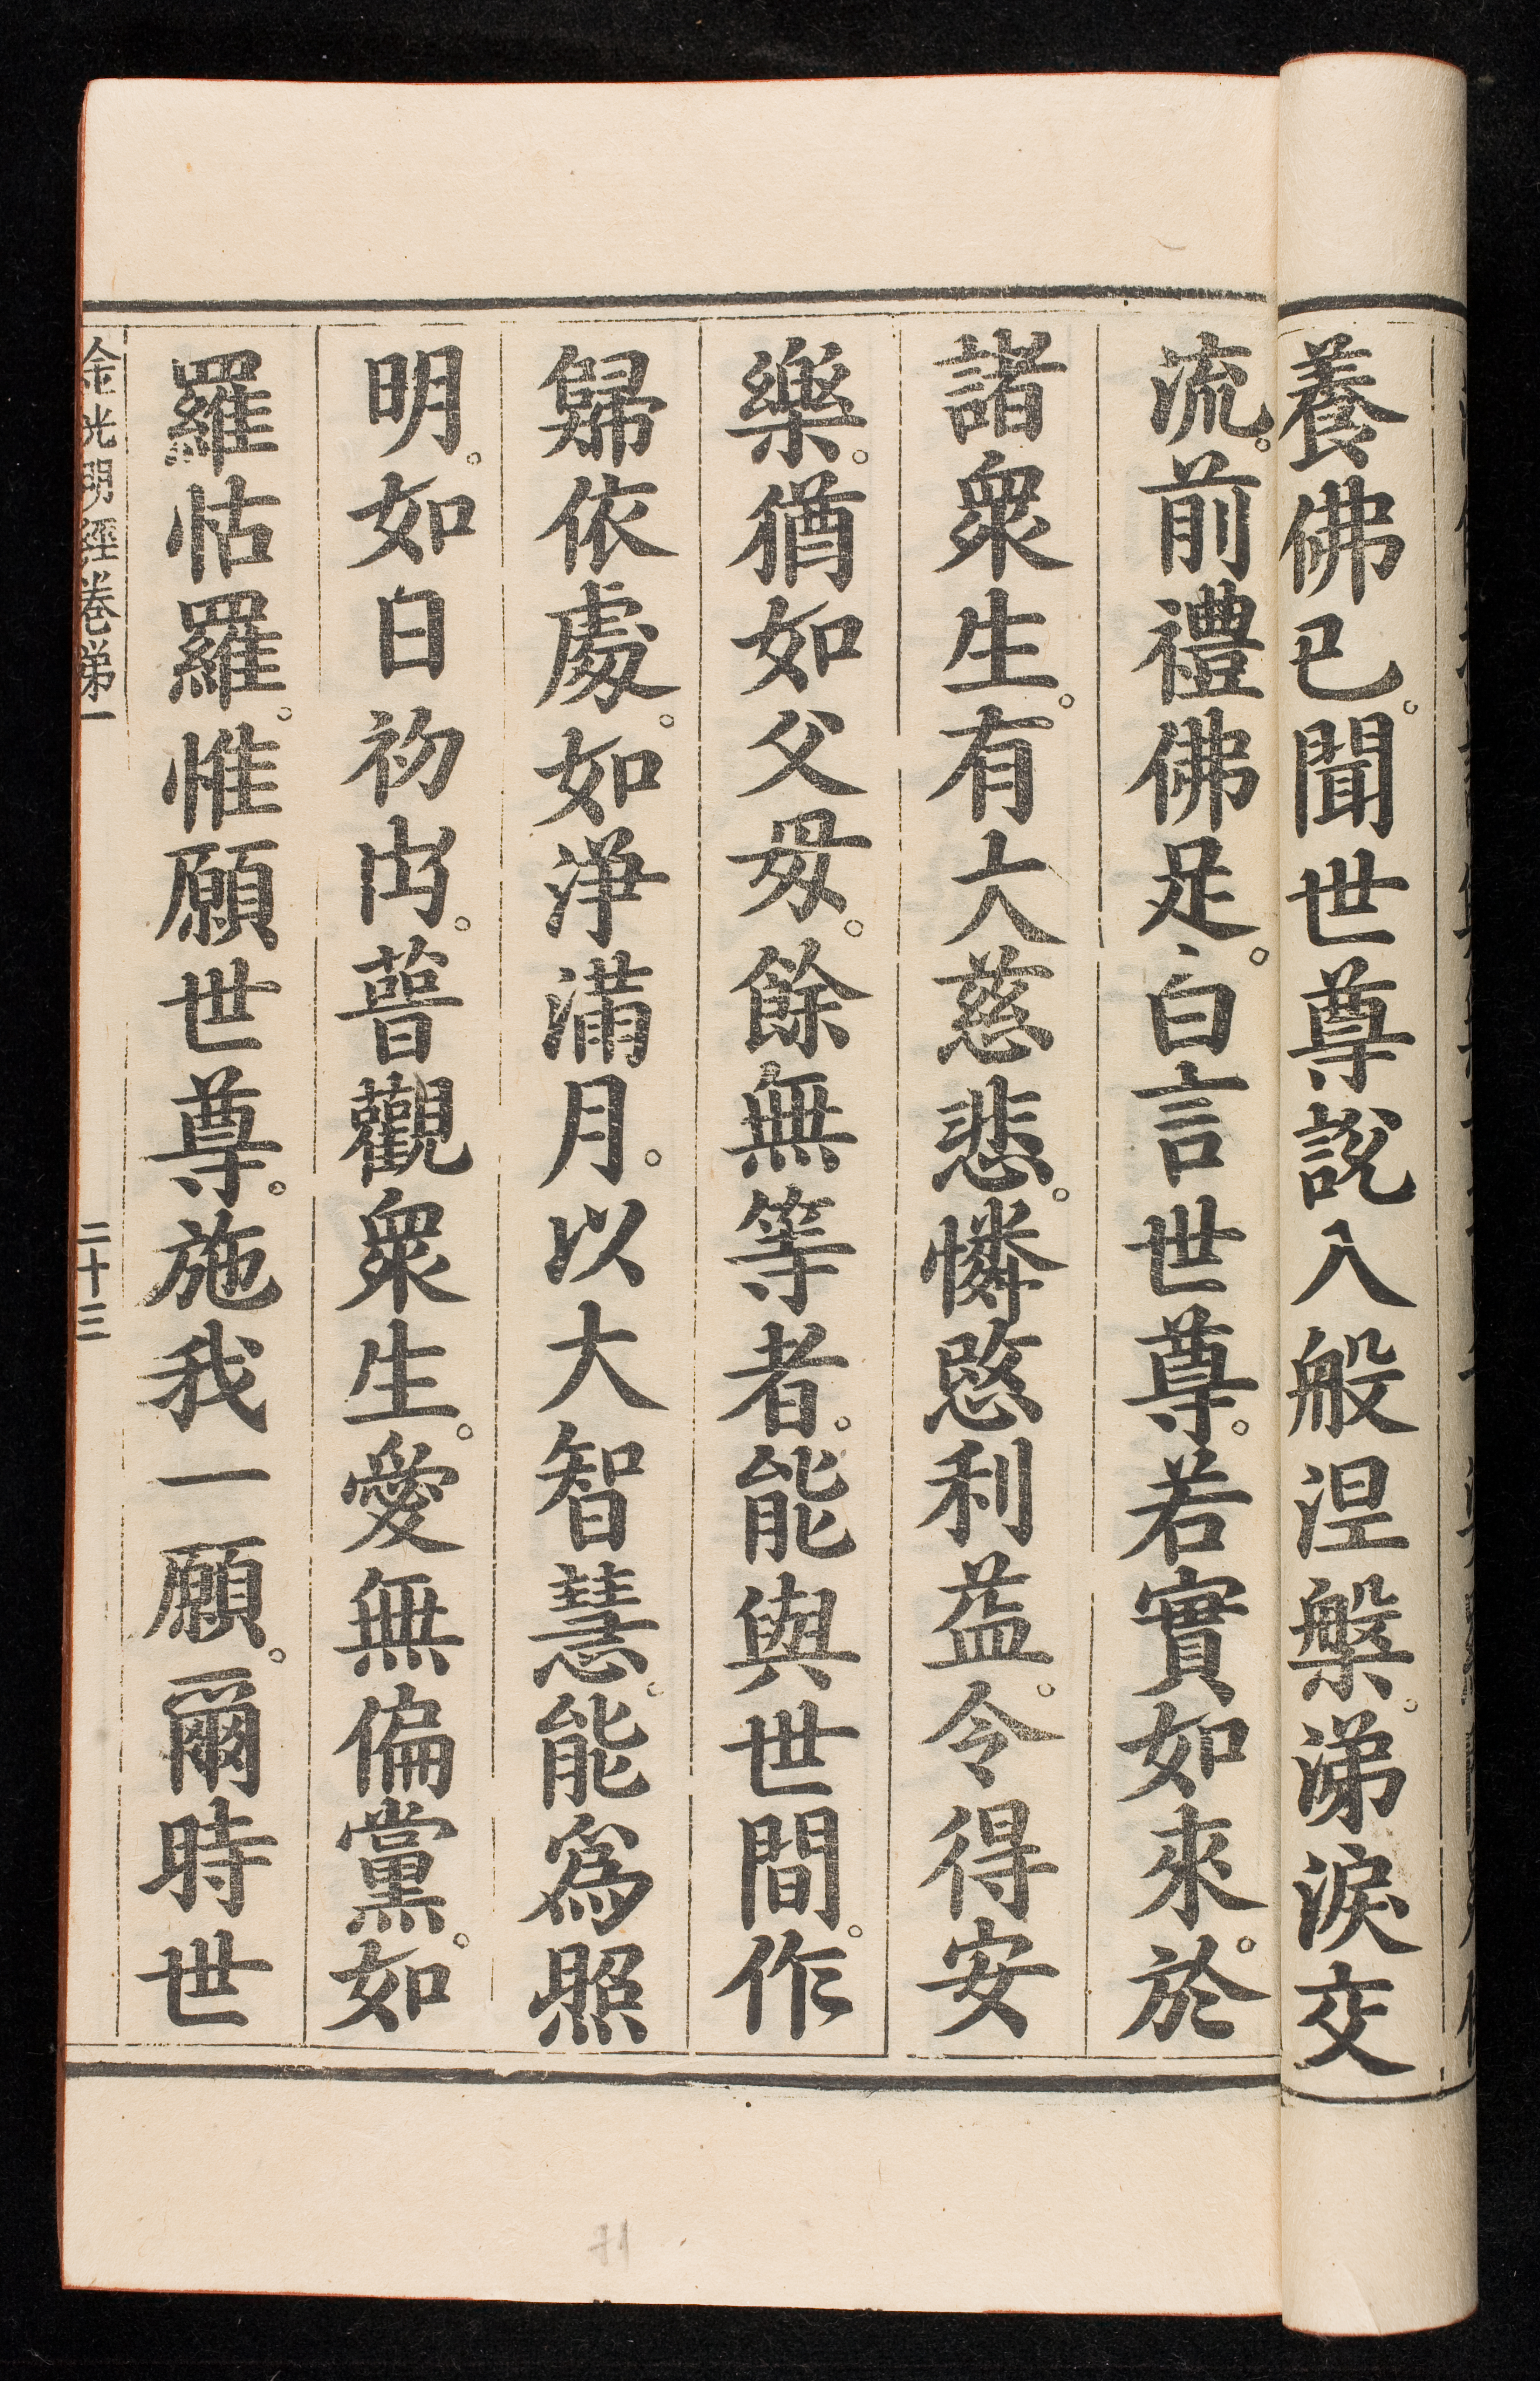 養佛已。聞世尊說入般涅槃。涕淚交
流。前禮佛足。白言世尊。若實如來。於
諸眾生。有大慈悲。憐愍利益。令得安
樂。猶如父母。餘無等者。能與世間。作
歸依處。如淨滿月。以大智慧。能為照
明。如日初出。普觀眾生。愛無偏黨。如
羅怙羅。惟願世尊。施我一願。爾時世
金光明經卷第一 二十三